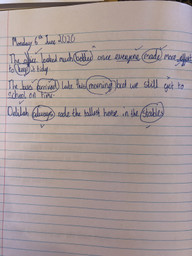 Monday 6th June 2020
The office looked much better once everyone made more effort
to keep it tidy.
The bus arrived late this morning but we still got to
school on time.
Delilah always rode the tallest horse in the stable.